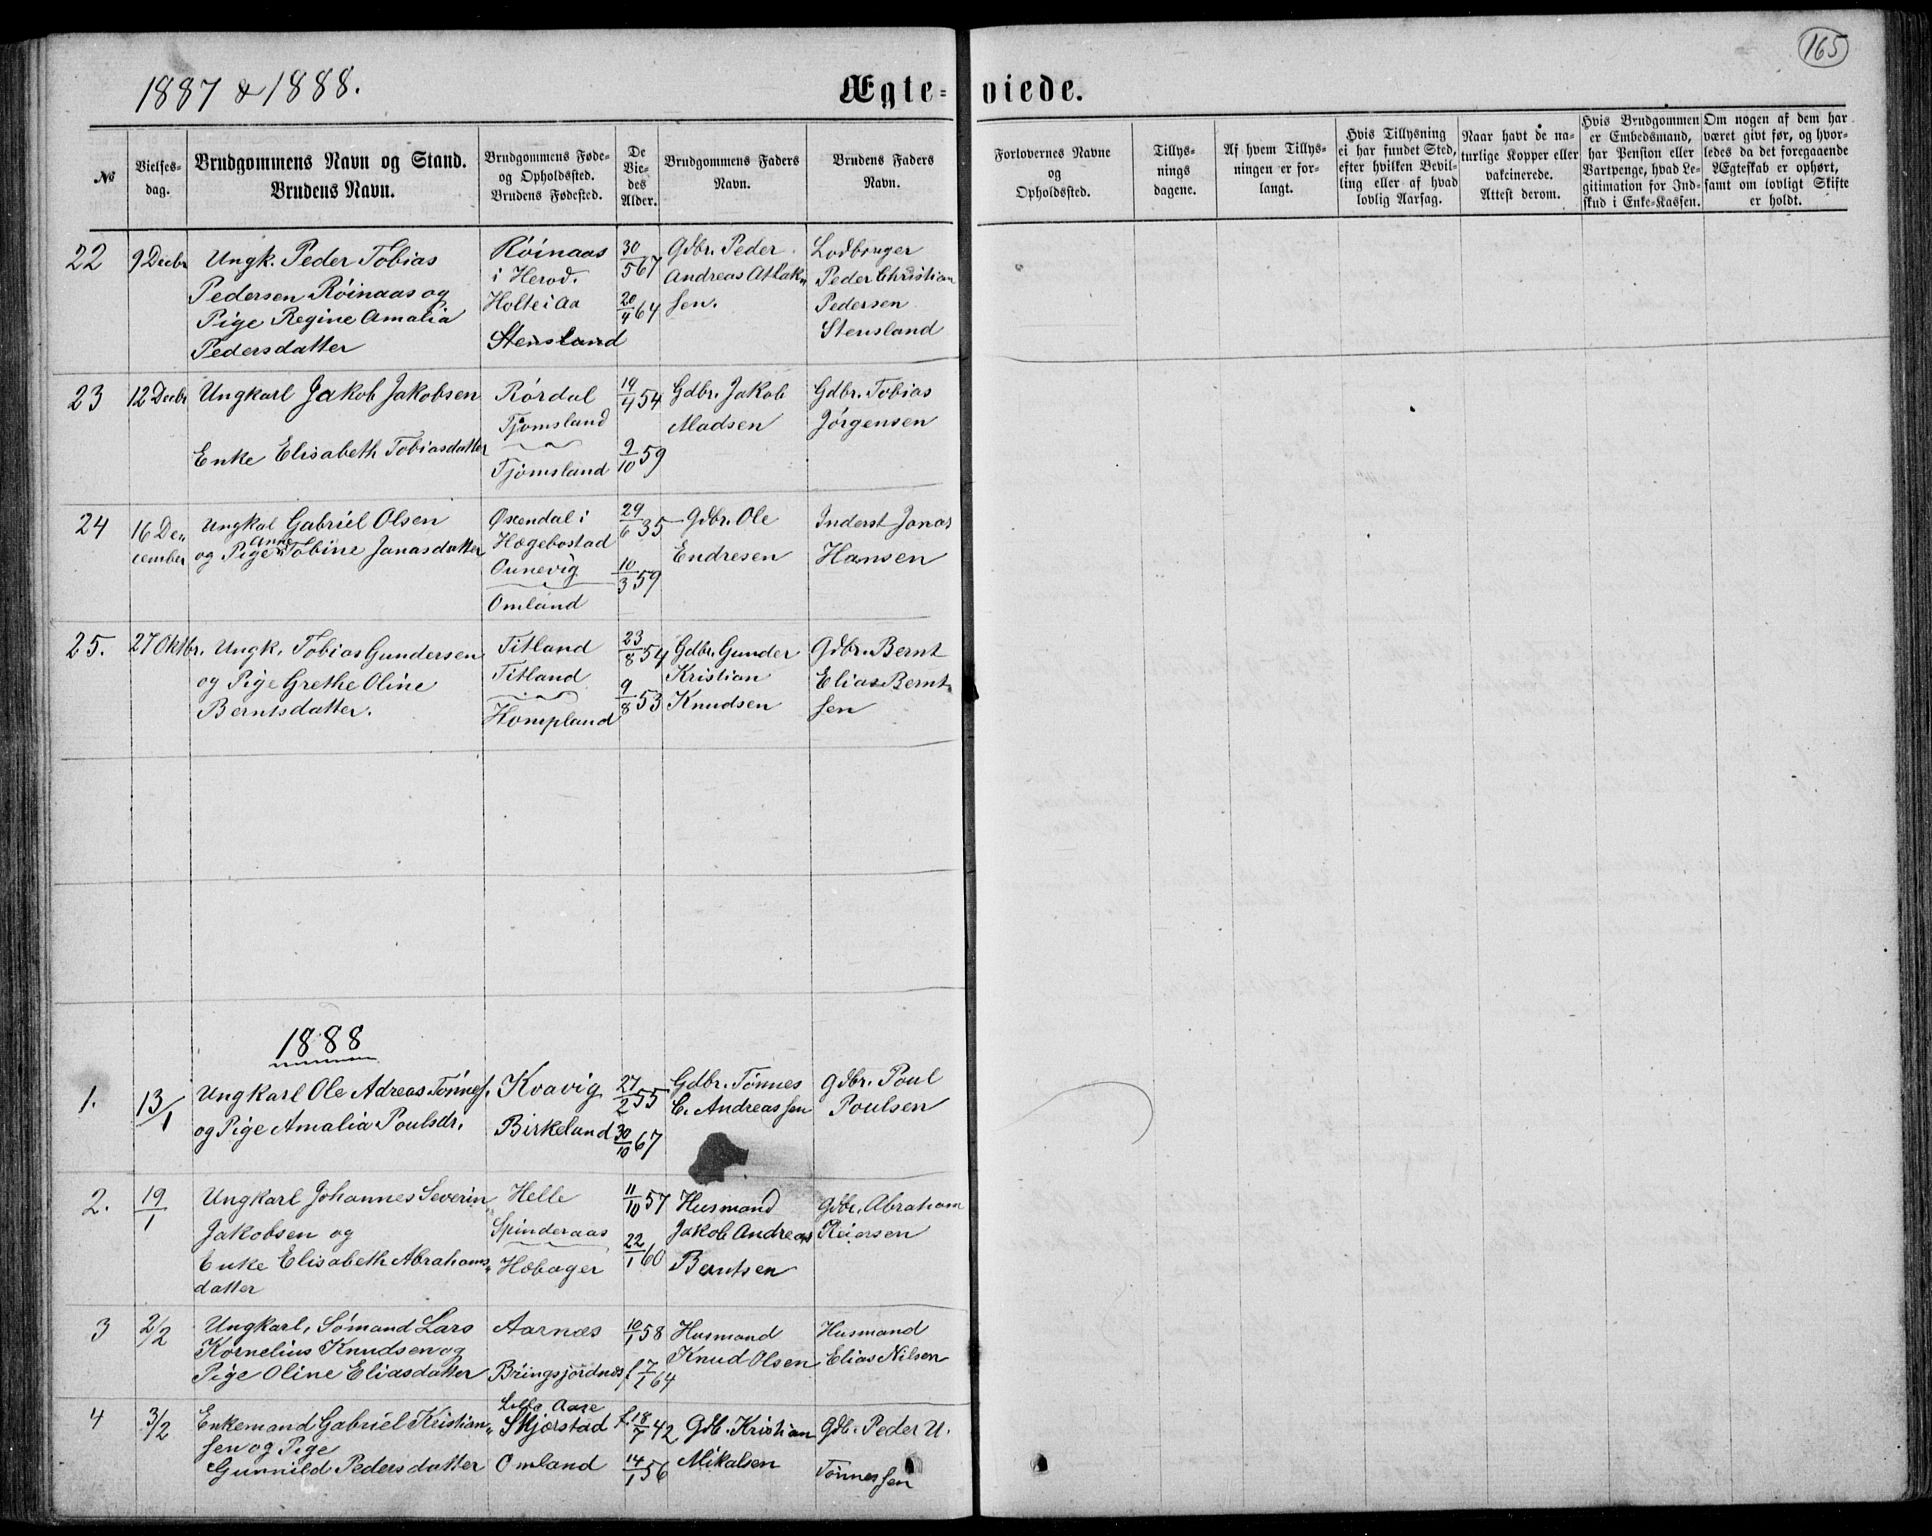 165
1887 & 1888.
Ægte-viede.
No
Vielses-
dag.
Brudgommens Navn og Stand.
Brudens Navn.
Brudgommens Føde-
og Opholdssted.
Brudens Fødested.
De
Vie-
des
Alder.
Brudgommens Faders
Navn.
Brudens Faders
Navn.
Forlovernes Navne
og
Opholdssted.
Tillys-
nings
dagene.
Af hvem Tillys-
ningen er for-
langt.
Hvis Tillysning
ei har fundet Sted,
efter hvilken Bevil-
ling eller af hvad
lovlig Aarsag.
Naar havt de na-
turlige Kopper eller
vakcinerede.
Attest derom.
Hvis Brudgommen
er Embedsmand,
har Pension eller
Vartpenge, hvad Le-
gitimation for Ind-
skud i Enke-Kassen.
Om nogen af dem har
været givt før, og hvor-
ledes da det foregaaende
Ægteskab er ophørt,
samt om lovligt Skifte
er holdt.
22
9 Decbr
Ungk. Peder Tobias
Pedersen Röinaas og
Pige Regine Amalia
Pedersdatter
Röinaas
i Herod.
Holte i Aa
Stensland
30/5 67
20/4 64
Gdbr. Peder
Andreas Atlak„
sen.
Lodbruger
Peder Christian
Pedersen
Stensland
23
12 Decbr
Ungkarl Jakob Jakobsen
Enke Elisabeth Tobiasdatter
Rørdal
Tjomsland
Tjomsland
19/4 54
9/10 59
Gdbr. Jakob
Madsen
Gdbr. Tobias
Jørgensen
24
16 De„
cember
Ungkal Gabriel Olsen
og Pige Anne Tobine Jonasdatter
Øxendal i
Hægebostad
Ounevig
Omland
29/6 35
10/3 59
Gdbr. Ole
Endresen
Inderst Jonas
Hansen
25.
27 Oktbr.
Ungk. Tobias Gundersen
og Pige Grethe Oline
Berntsdatter.
Titland
Titland
Hompland
23/8 54
9/8 53
Gdbr. Gunder
Kristian
Knudsen
Gdbr. Bernt
Elias Bernt„
sen
1888
1.
13/1
Ungkarl Ole Adreas Tönnes.
og Pige Amalia Poulsdr.
Kvavig
Birkeland
27/2 55
30/10 67
Gdbr. Tønnes
C. Andreassen
Gdbr. Poul
Poulsen
2.
19/1
Ungkarl Johannes Severin
Jakobsen og
Enke Elisabeth Abrahams„
datter
Helle
Spinderaas
Høbager
11/10 57
22/1 60
Husmand
Jakob Andreas
Berntsen
Gdbr. Abraham
Reiersen
3
2/2
Ungkarl, Sømand Lars
Kornelius Knudsen og
Pige Oline Eliasdatter
Aarnæs
Bringsjordnæs
10/1 58
f 7/1 64
Husmand
Knud Olsen
Husmand
Elias Nilsen
4
3/2
Enkemand Gabriel Kristian„
sen og Pige
Gunnild Pedersdatter
Lille Aase
Skjørstad
Omland
f. 18/7 42
14/1 56
Gdb. Kristian
Mikalsen
Gdb. Peder U.
Tønnessen